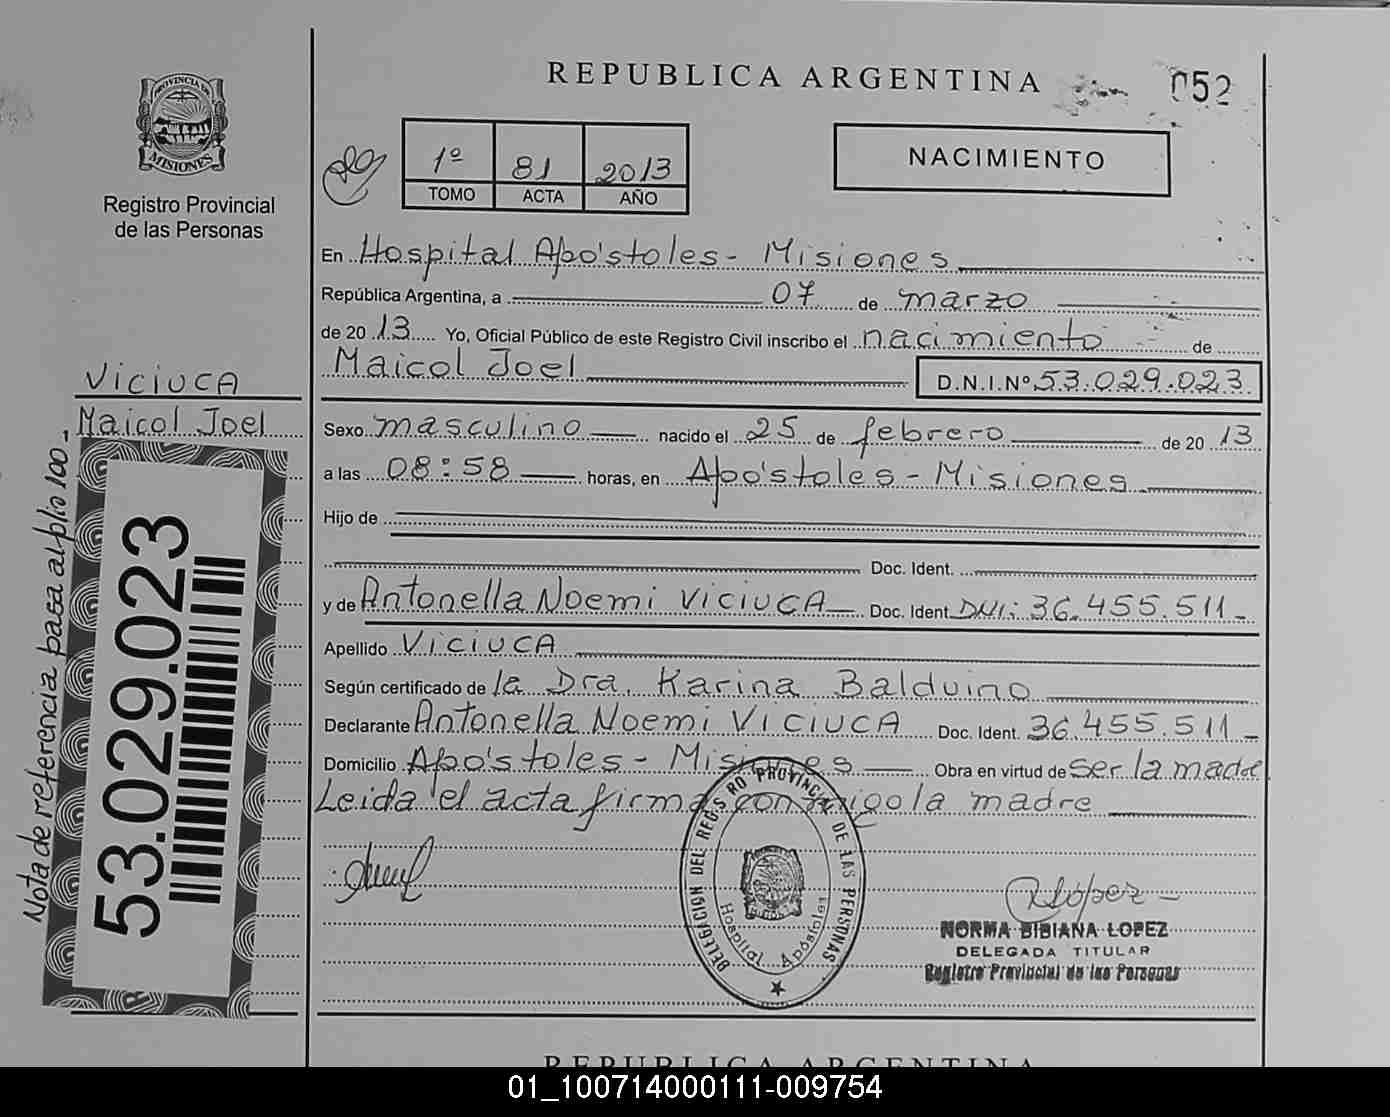 REPUBLICA ARGENTINA
052
PROVINCIA DE
MISIONES
Registro Provincial
de las Personas
1º 81 2013
TOMO ACTA AÑO
NACIMIENTO
En Hospital Apóstoles - Misiones
República Argentina, a 07 de marzo
de 2013 Yo, Oficial Público de este Registro Civil inscribo el nacimiento de
Maicol Joel D.N.I.Nº 53.029.023
VICIUCA
Maicol Joel
Sexo masculino nacido el 25 de febrero de 2013
a las 08:58 horas, en Apóstoles - Misiones
Hijo de
Doc. Ident.
y de Antonella Noemi VICIUCA Doc. Ident. DNI: 36.455.511 -
Apellido VICIUCA
Según certificado de la Dra. Karina Balduino
Declarante Antonella Noemi VICIUCA Doc. Ident. 36.455.511 -
Domicilio Apóstoles - Misiones Obra en virtud de ser la madre
Leida el acta firma conmigo la madre
Nota de referencia pasa al folio 100 -
53.029.023
DELEGACION DEL REGISTRO PROVINCIAL DE LAS PERSONAS
Hospital Apóstoles
López
NORMA BIBIANA LOPEZ
DELEGADA TITULAR
Registro Provincial de las Personas
REPUBLICA ARGENTINA
01_100714000111-009754